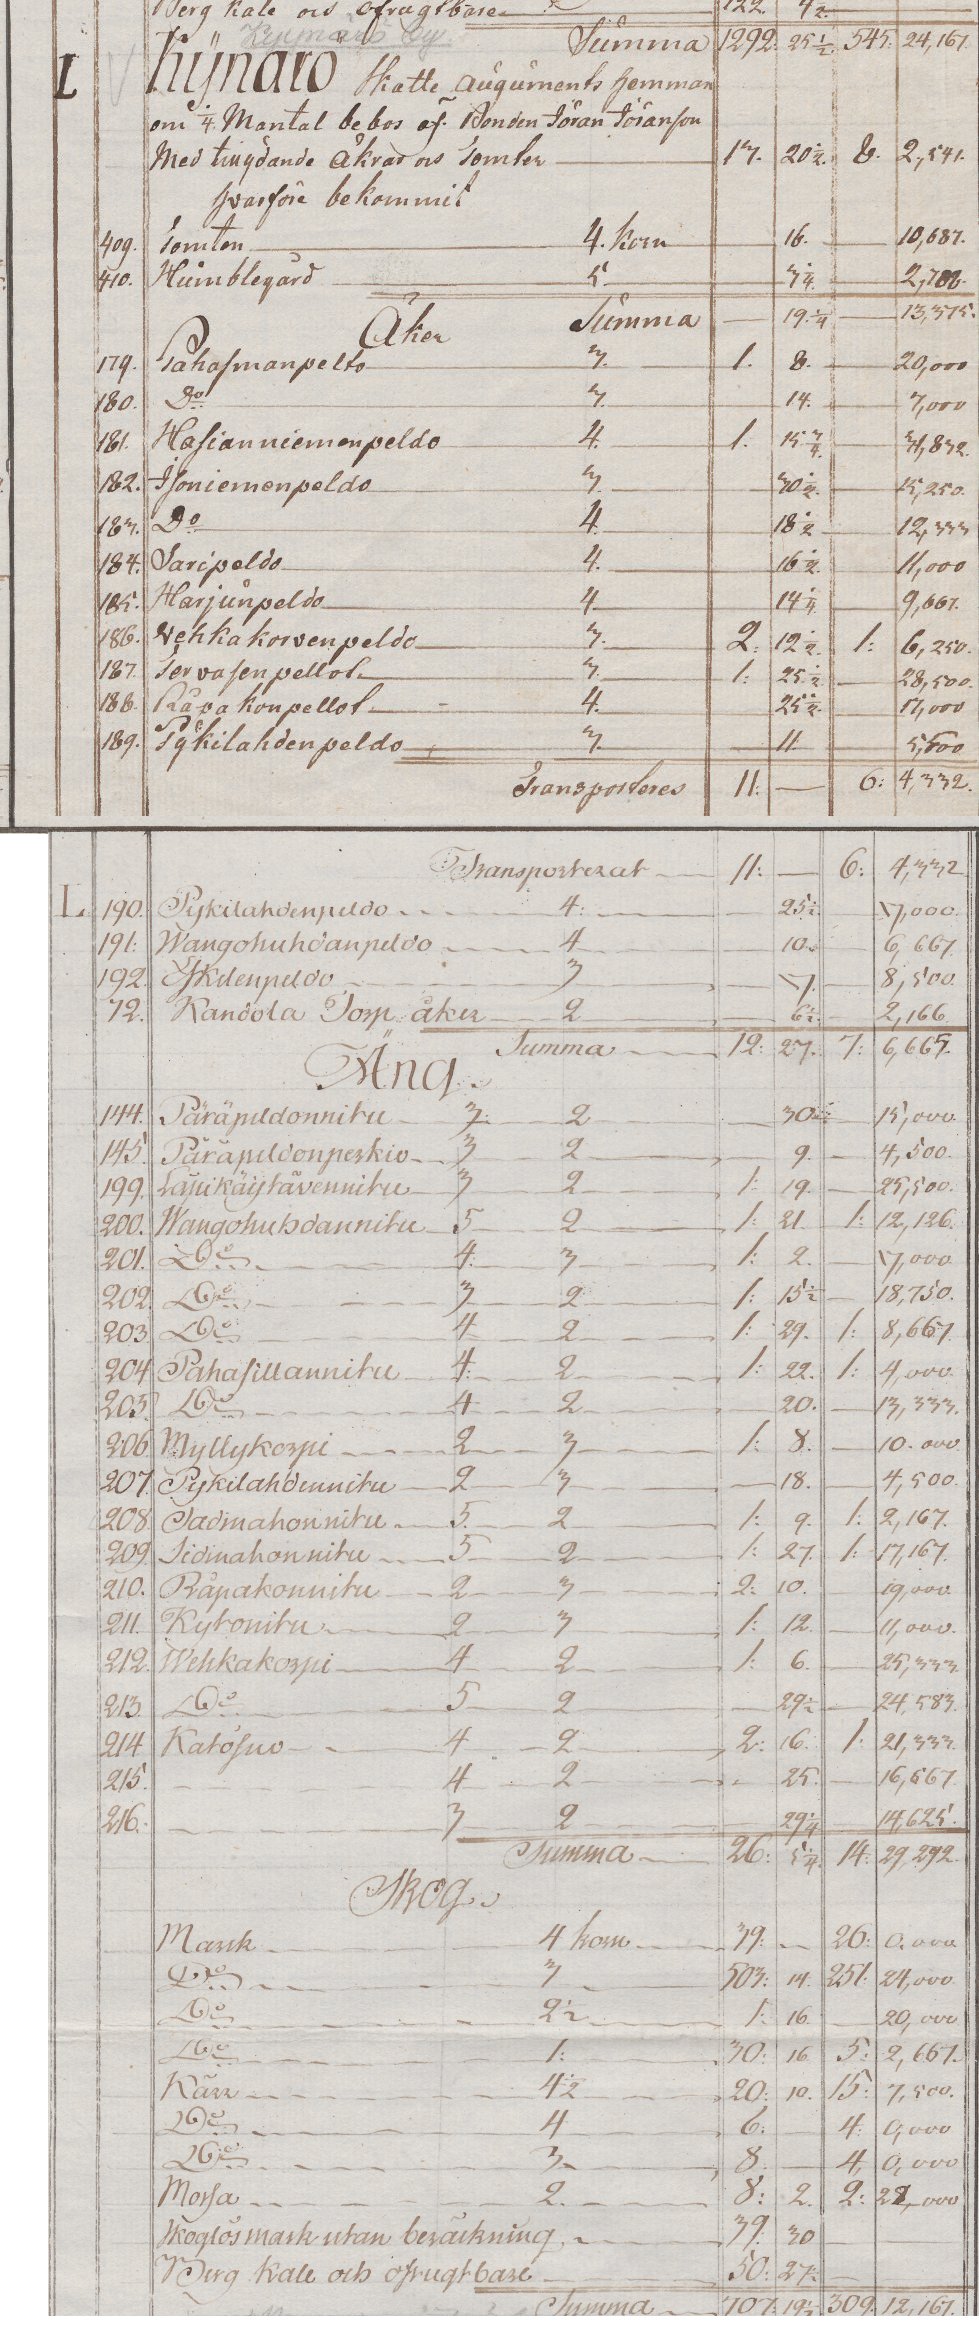 Berg kale och ofrugtbare 122. 4 1/2.
Summa 1292: 25 1/2 545: 24,167.
L Kijnäro Skatte Augments hemman
om 1/4 Mantal bebos af Bonden Jöran Jöranson
Med tingdande Åkrar och Tomter 17. 20 1/2. 8. 2,541.
hvarföre bekommit
409. Tomten 4. korn 16. 10,687.
410. Humblegård 5. 3 1/4. 2,788.
Åker Summa 19 1/4 13,375.
179. Pahasmanpelto 3. 1. 8. 20,000
180. Do 3. 14. 7,000
181. Hasianniemenpeldo 4. 1. 15 3/4. 31,832.
182. Isoniemenpeldo 3. 30 1/2. 15,250.
183. Do 4. 18 1/2 12,333
184. Saripeldo 4. 16 1/2. 11,000
185. Harjunpeldo 4. 14 1/2. 9,667.
186. Wehkakorvenpeldo 3. 2. 12 1/2. 1: 6,250.
187. Torvasenpellot 3. 1: 25 1/2 28,500
188. Räpakonpellot 4. 25 1/2. 17,000
189. Pykilahdenpeldo 3. 11 5,500
Transporteres 11: 6: 4,332.
Transporterat 11: 6: 4,332
L. 190. Pykilahdenpeldo 4. 25 1/2 17,000.
191. Wangohuhdanpeldo 4 10. 6,667.
192. Eskilenpeldo 3 17. 8,500.
72. Kandola Torp åker 2 6 1/2 2,166.
Summa 12: 27. 7: 6,665.
Äng.
144. Päräpeldonnitu 3. 2 30 1/2 15,000.
145. Päräpeldonperkio 3 2 9. 4,500.
199. Läpikäytävennitu 3 2 1: 19. 25,500.
200. Wangohuhdannitu 5 2 1: 21. 1: 12,126.
201. Do 4. 3 1: 2. 17,000
202. Do 3 2 1: 15 1/2 18,750.
203. Do 4 2 1: 29. 1: 8,667.
204 Pahasillannitu 4. 2 1: 22. 1: 4,000.
205. Do 4 2 20. 13,333.
206 Myllykorpi 2 3 1: 8. 10.000
207. Pykilahdennitu 2 3 18. 4,500.
208 Sadmahonnitu 5. 2 1: 9. 1: 2,167.
209. Sidmahonnitu 5 2 1: 27. 1: 17,167.
210. Räpakonnitu 2 3 2: 10. 19,000.
211. Kytonitu 2 3 1: 12. 11,000.
212. Wehkakorpi 4 2 1: 6. 25,333
213. Do 5 2 29 1/2 24,583
214 Katosuo 4 2 2: 16. 1: 21,333.
215. 4 2 25. 16,667.
216. 3 2 29 1/4 14,625.
Summa 26: 5 1/4. 14: 29,292
Skog.
Mark 4 korn 39: 26: 0.000
Do 3 503: 14. 251: 24,000
Do 2 1/2 1: 16 20,000
Do 1: 30: 16 5: 2,667.
Kärr 4 1/2 20: 10. 15: 7,500.
Do 4 6: 4: 0,000
Do 3. 8. 4, 0,000
Mossa 2. 8: 2. 2: 28,000
Skoglös mark utan beräckning 39. 30
Berg kale och ofrugtbare 50: 27 1/2
Summa 707: 19 1/2 309: 12,167.